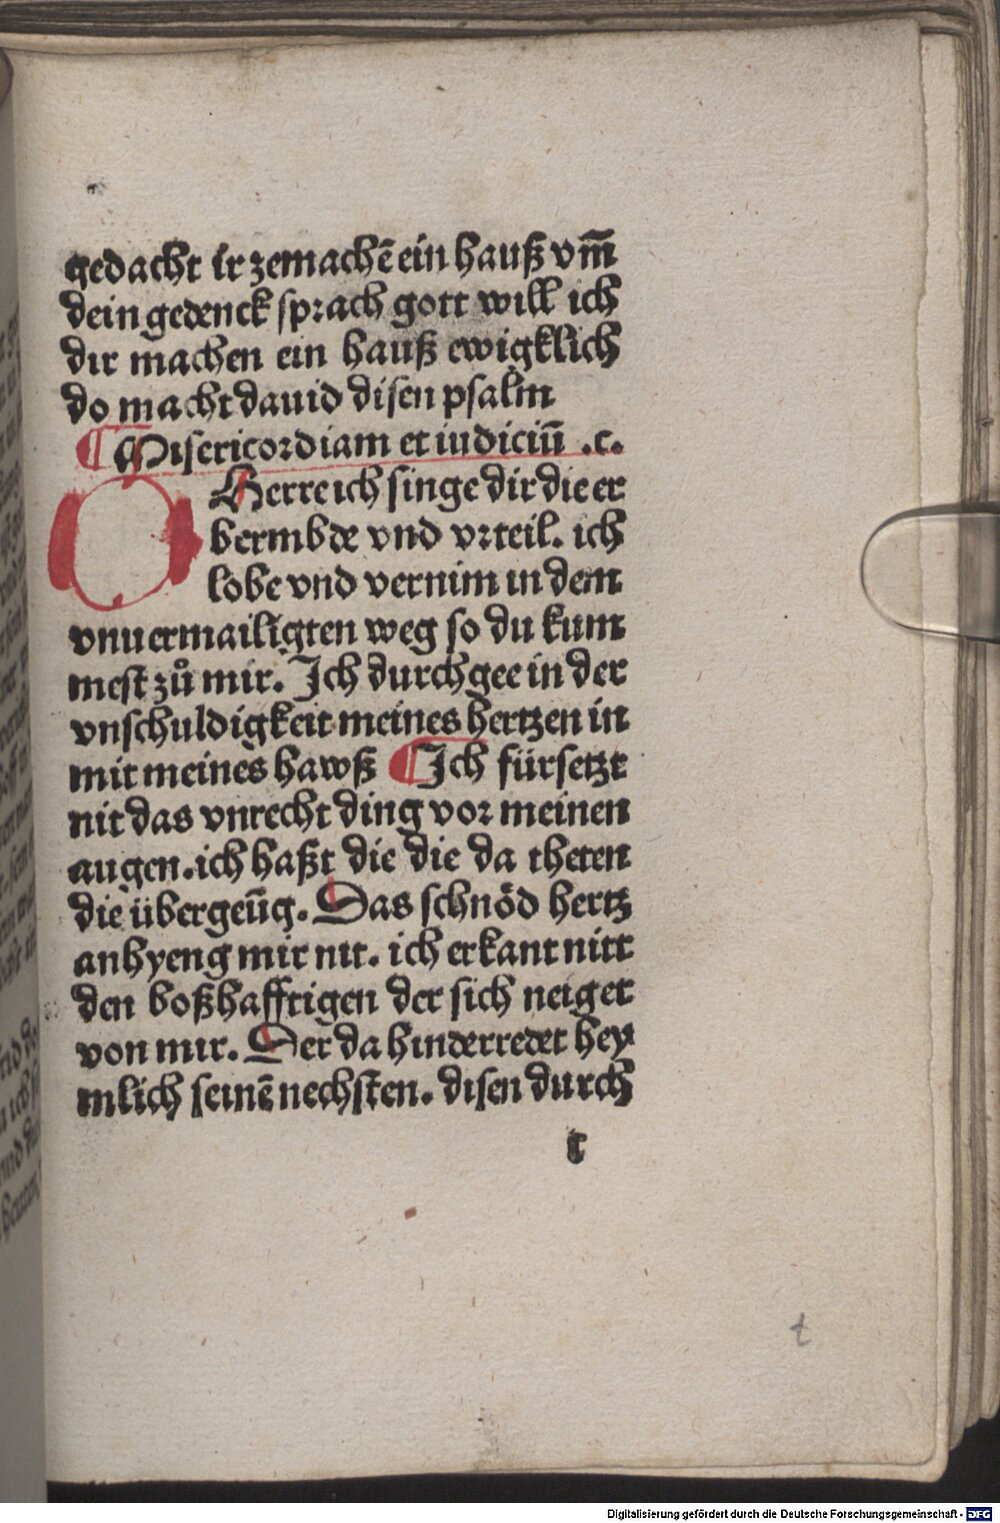 gedacht ir zemachē ein hauß vm̄
dein gedenck sprach gott will ich
dir machen ein hauß ewigklich
do macht dauid disen psalm
¶ Misericordiam et iudiciū .c.
O Herre ich singe dir die er
bermbde vnd vrteil. ich
lobe vnd vernim in dem
vnuermailigten weg so du kum
mest zů mir. Ich durchgee in der
vnschuldigkeit meines hertzen in
mit meines hawß ¶ Ich fürsetzt
nit das vnrecht ding vor meinen
augen. ich haßt die die da theten
die übergeūg. Das schnöd hertz
anhyeng mir nit. ich erkant nitt
den boßhafftigen der sich neiget
von mir. Der da hinderredet hey
mlich seinē nechsten. disen durch
t
t
Digitalisierung gefördert durch die Deutsche Forschungsgemeinschaft - DFG